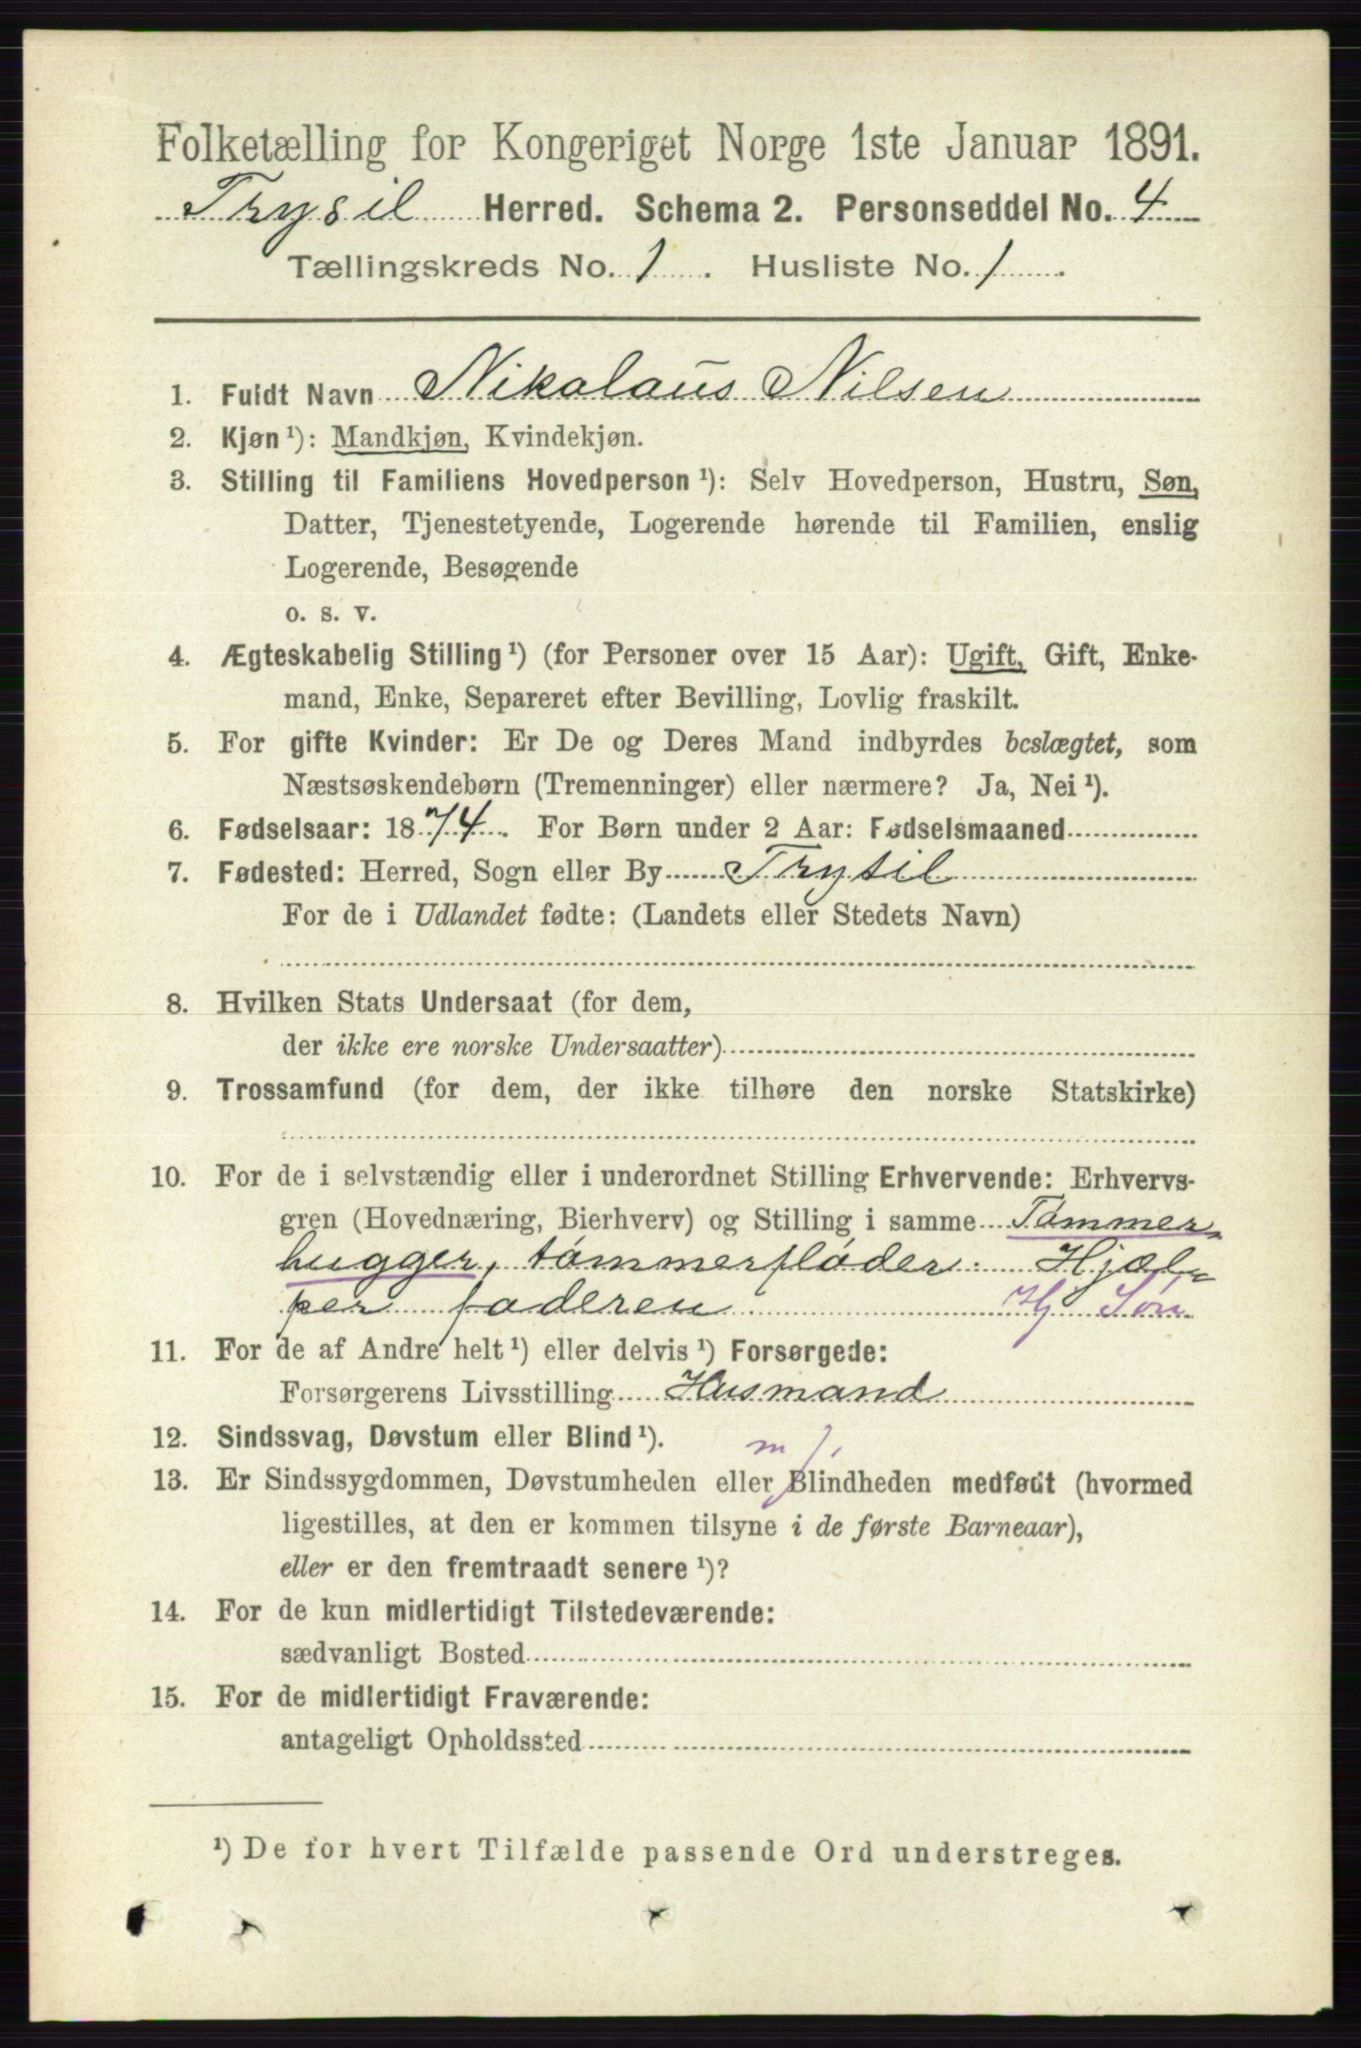 Folketælling for Kongeriget Norge 1ste Januar 1891.
Trysil Herred. Schema 2. Personseddel No. 4
Tællingskreds No. 1. Husliste No. 1.
1. Fuldt Navn Nikolaus Nilsen
2. Kjøn ¹): Mandkjøn, Kvindekjøn.
3. Stilling til Familiens Hovedperson ¹): Selv Hovedperson, Hustru, Søn,
Datter, Tjenestetyende, Logerende hørende til Familien, enslig
Logerende, Besøgende
o. s. v.
4. Ægteskabelig Stilling ¹) (for Personer over 15 Aar): Ugift, Gift, Enke-
mand, Enke, Separeret efter Bevilling, Lovlig fraskilt.
5. For gifte Kvinder: Er De og Deres Mand indbyrdes beslægtet, som
Næstsøskendebørn (Tremenninger) eller nærmere? Ja, Nei ¹).
6. Fødselsaar: 1874. For Børn under 2 Aar: Fødselsmaaned
7. Fødested: Herred, Sogn eller By Trysil
For de i Udlandet fødte: (Landets eller Stedets Navn)
8. Hvilken Stats Undersaat (for dem,
der ikke ere norske Undersaatter)
9. Trossamfund (for dem, der ikke tilhøre den norske Statskirke)
10. For de i selvstændig eller i underordnet Stilling Erhvervende: Erhvervs-
gren (Hovednæring, Bierhverv) og Stilling i samme Tømmer-
hugger, tømmerfløder. Hjæl-
per faderen Hj Søn
11. For de af Andre helt ¹) eller delvis ¹) Forsørgede:
Forsørgerens Livsstilling Husmand
12. Sindssvag, Døvstum eller Blind ¹).
13. Er Sindssygdommen, Døvstumheden eller Blindheden medfødt (hvormed
ligestilles, at den er kommen tilsyne i de første Barneaar),
eller er den fremtraadt senere ¹)?
14. For de kun midlertidigt Tilstedeværende:
sædvanligt Bosted
15. For de midlertidigt Fraværende:
antageligt Opholdssted
¹) De for hvert Tilfælde passende Ord understreges.